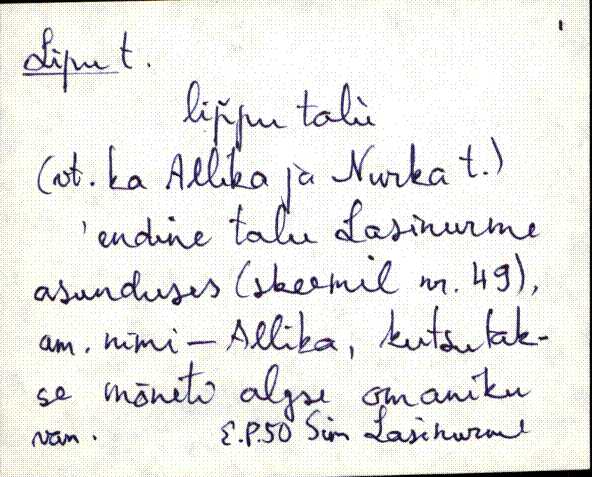 Lipu t.
lip̆pu talù
(vt. ka Allika ja Nurka t.)
'endine talu Lasinurme
asunduses (skeemil nr. 49),
am. nimi – Allika, kutsutak-
se mõneti algse omaniku
van.
E.P.50 Sim Lasinurme